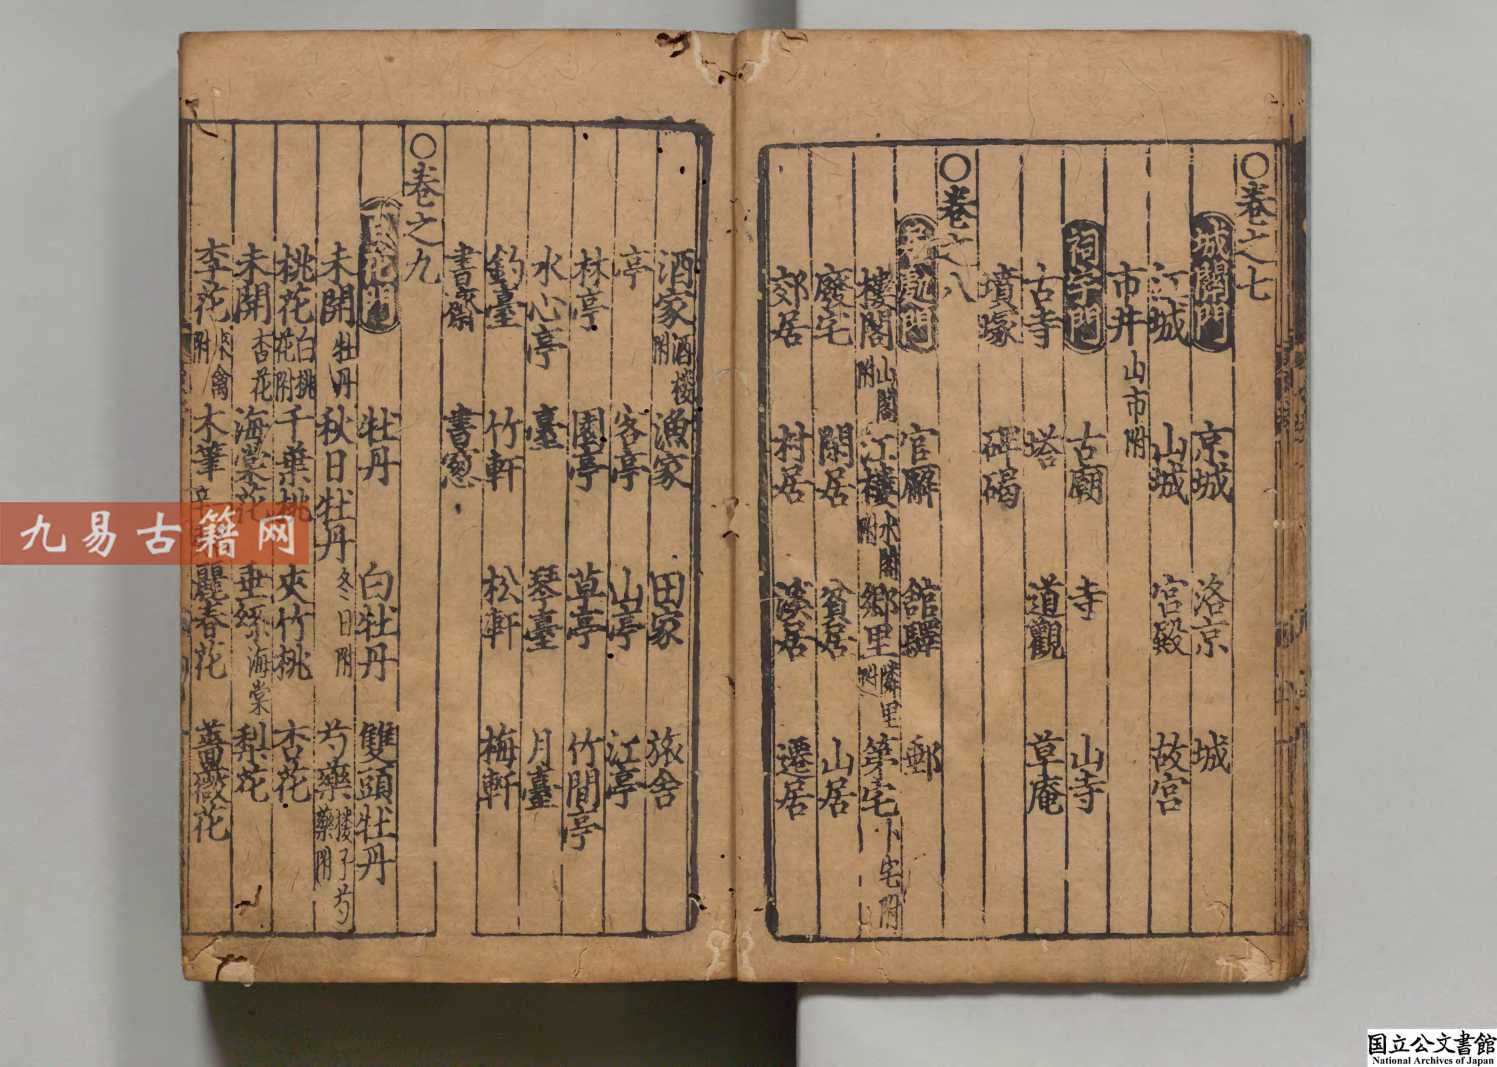 ○卷之七
城闕門 京城 洛京 城
江城 山城 宮殿 故宮
市井 山市附
祠宇門 古廟 寺 山寺
古寺 塔 道觀 草庵
墳塚 碑碣
○卷之八
門 官廨 舘驛 郵
樓閣 山閣附 江樓 水閣附 鄉里 隣里附 築宅 卜宅附
廢宅 閑居 貧居 山居
郊居 村居 溪居 遷居
酒家 酒樓附 漁家 田家 旅舍
亭 客亭 山亭 江亭
林亭 園亭 草亭 竹間亭
水心亭 臺 琴臺 月臺
釣臺 竹軒 松軒 梅軒
書齋 書窓
○卷之九
花門 牡丹 白牡丹 雙頭牡丹
未開牡丹 秋日牡丹 冬日附 芍藥 樓子芍藥附
桃花 白桃花附 千葉桃 夾竹桃 杏花
未開杏花 海棠花 垂絲海棠 梨花
李花 來禽附 木筆 麗春花 薔薇花
九易古籍网
国立公文書館
National Archives of Japan